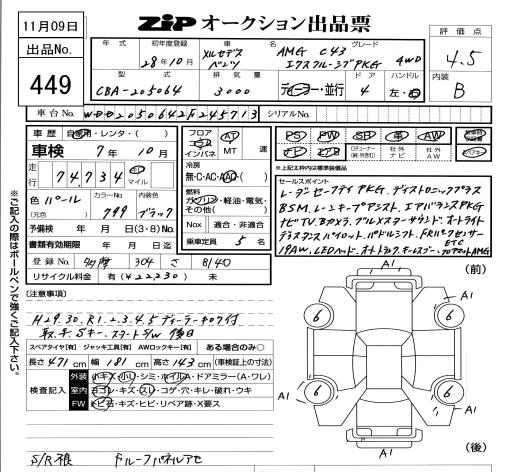 11月09日
ZiP オークション出品票
評価点
4.5
出品No.
449
年式
初年度登録
28年10月
車名
メルセデスベンツ
グレード
AMG C43
エクスクルーシブPKG 4WD
型式
CBA-205064
排気量
3000
ディーラー・並行
ドア
4
ハンドル
左・右
内装
B
車台No.
WDD2050642F245713
シリアルNo.
車歴 自家用・レンタ・( )
車検 7年 10月
走行 74,734 km マイル
色 パール
(元色)
カラーNo
799
内装色
ブラック
予備検 年 月 日(3・8)No.
書類有効期限 年 月 日迄
登録No. 多摩 304 さ 8140
リサイクル料金 有(¥22,230) 未
フロア
コラム
インパネ
AT
MT 速
冷房
無・C・AC・AAC・( )
燃料
ガソリン・軽油・電気・
その他( )
Nox 適合・非適合
乗車定員 5 名
PS PW SR 革 AW
ナビ エアB
Dチューナー
(純・外含む)
社外
ナビ
社外
AW
※上記太枠内は標準装備品
セールスポイント
レーダーセーフティPKG. ディストロニックプラス
BSM. レーンキープアシスト. エアバランスPKG
ナビTV. Bカメラ. ブルメスターサウンド. オートライト
ディスタンスパイロット. パドルシフト. FRパークセンサー
ETC
19AW. LEDヘッド. オートトランク. キーレスゴー.
[注意事項]
H29.30.R1.2.3.4.5 ディーラーキロク付
取.手.Sキー. スタートS/W 後日
スペアタイヤ[有] ジャッキ工具[有] AWロックキー[有] ある場合のみ○
長さ471cm 幅181cm 高さ143cm (車検証上の寸法)
検査記入
外装 小キズ・小凹・シミ・ホイルA・ドアミラー(A・ワレ)
室内 ヨゴレ・キズ・スレ・コゲ・穴・キレ・破れ・ウキ
FW トビ石・キズ・ヒビ・リペア跡・X要ス
S/R根
ドルーフパネルアセ
※ご記入の際はボールペンで強くご記入下さい。
(前)
A1
6
6
A1
6
6
A1
A1
A1
(後)